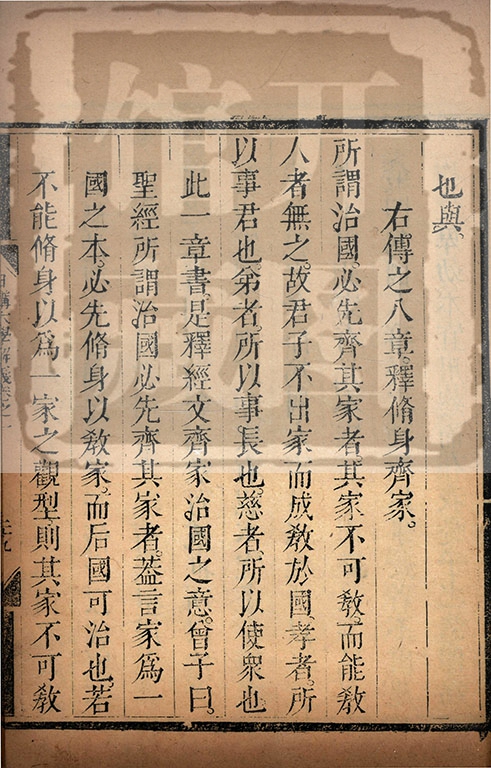 也與。
右傳之八章。釋脩身齊家。
所謂治國。必先齊其家者。其家不可教。而能教
人者無之。故君子不出家而成教於國。孝者。所
以事君也。弟者。所以事長也。慈者。所以使眾也
此一章書。是釋經文齊家治國之意。曾子曰。
聖經所謂治國必先齊其家者。葢言家爲一
國之本。必先脩身以教家。而后國可治也。若
不能脩身以爲一家之觀型。則其家不可教